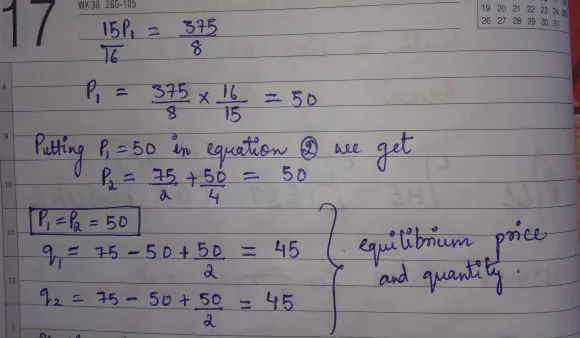 17
WK 38 260-105
19 20 21 22 23 24 25
26 27 28 29 30 31
15P₁/16 = 375/8
P₁ = 375/8 × 16/15 = 50
Putting P₁ = 50 in equation ② we get
P₂ = 75/2 + 50/4 = 50
P₁ = P₂ = 50
q₁ = 75 − 50 + 50/2 = 45
q₂ = 75 − 50 + 50/2 = 45
equilibrium price
and quantity.
8
9
10
11
12
1